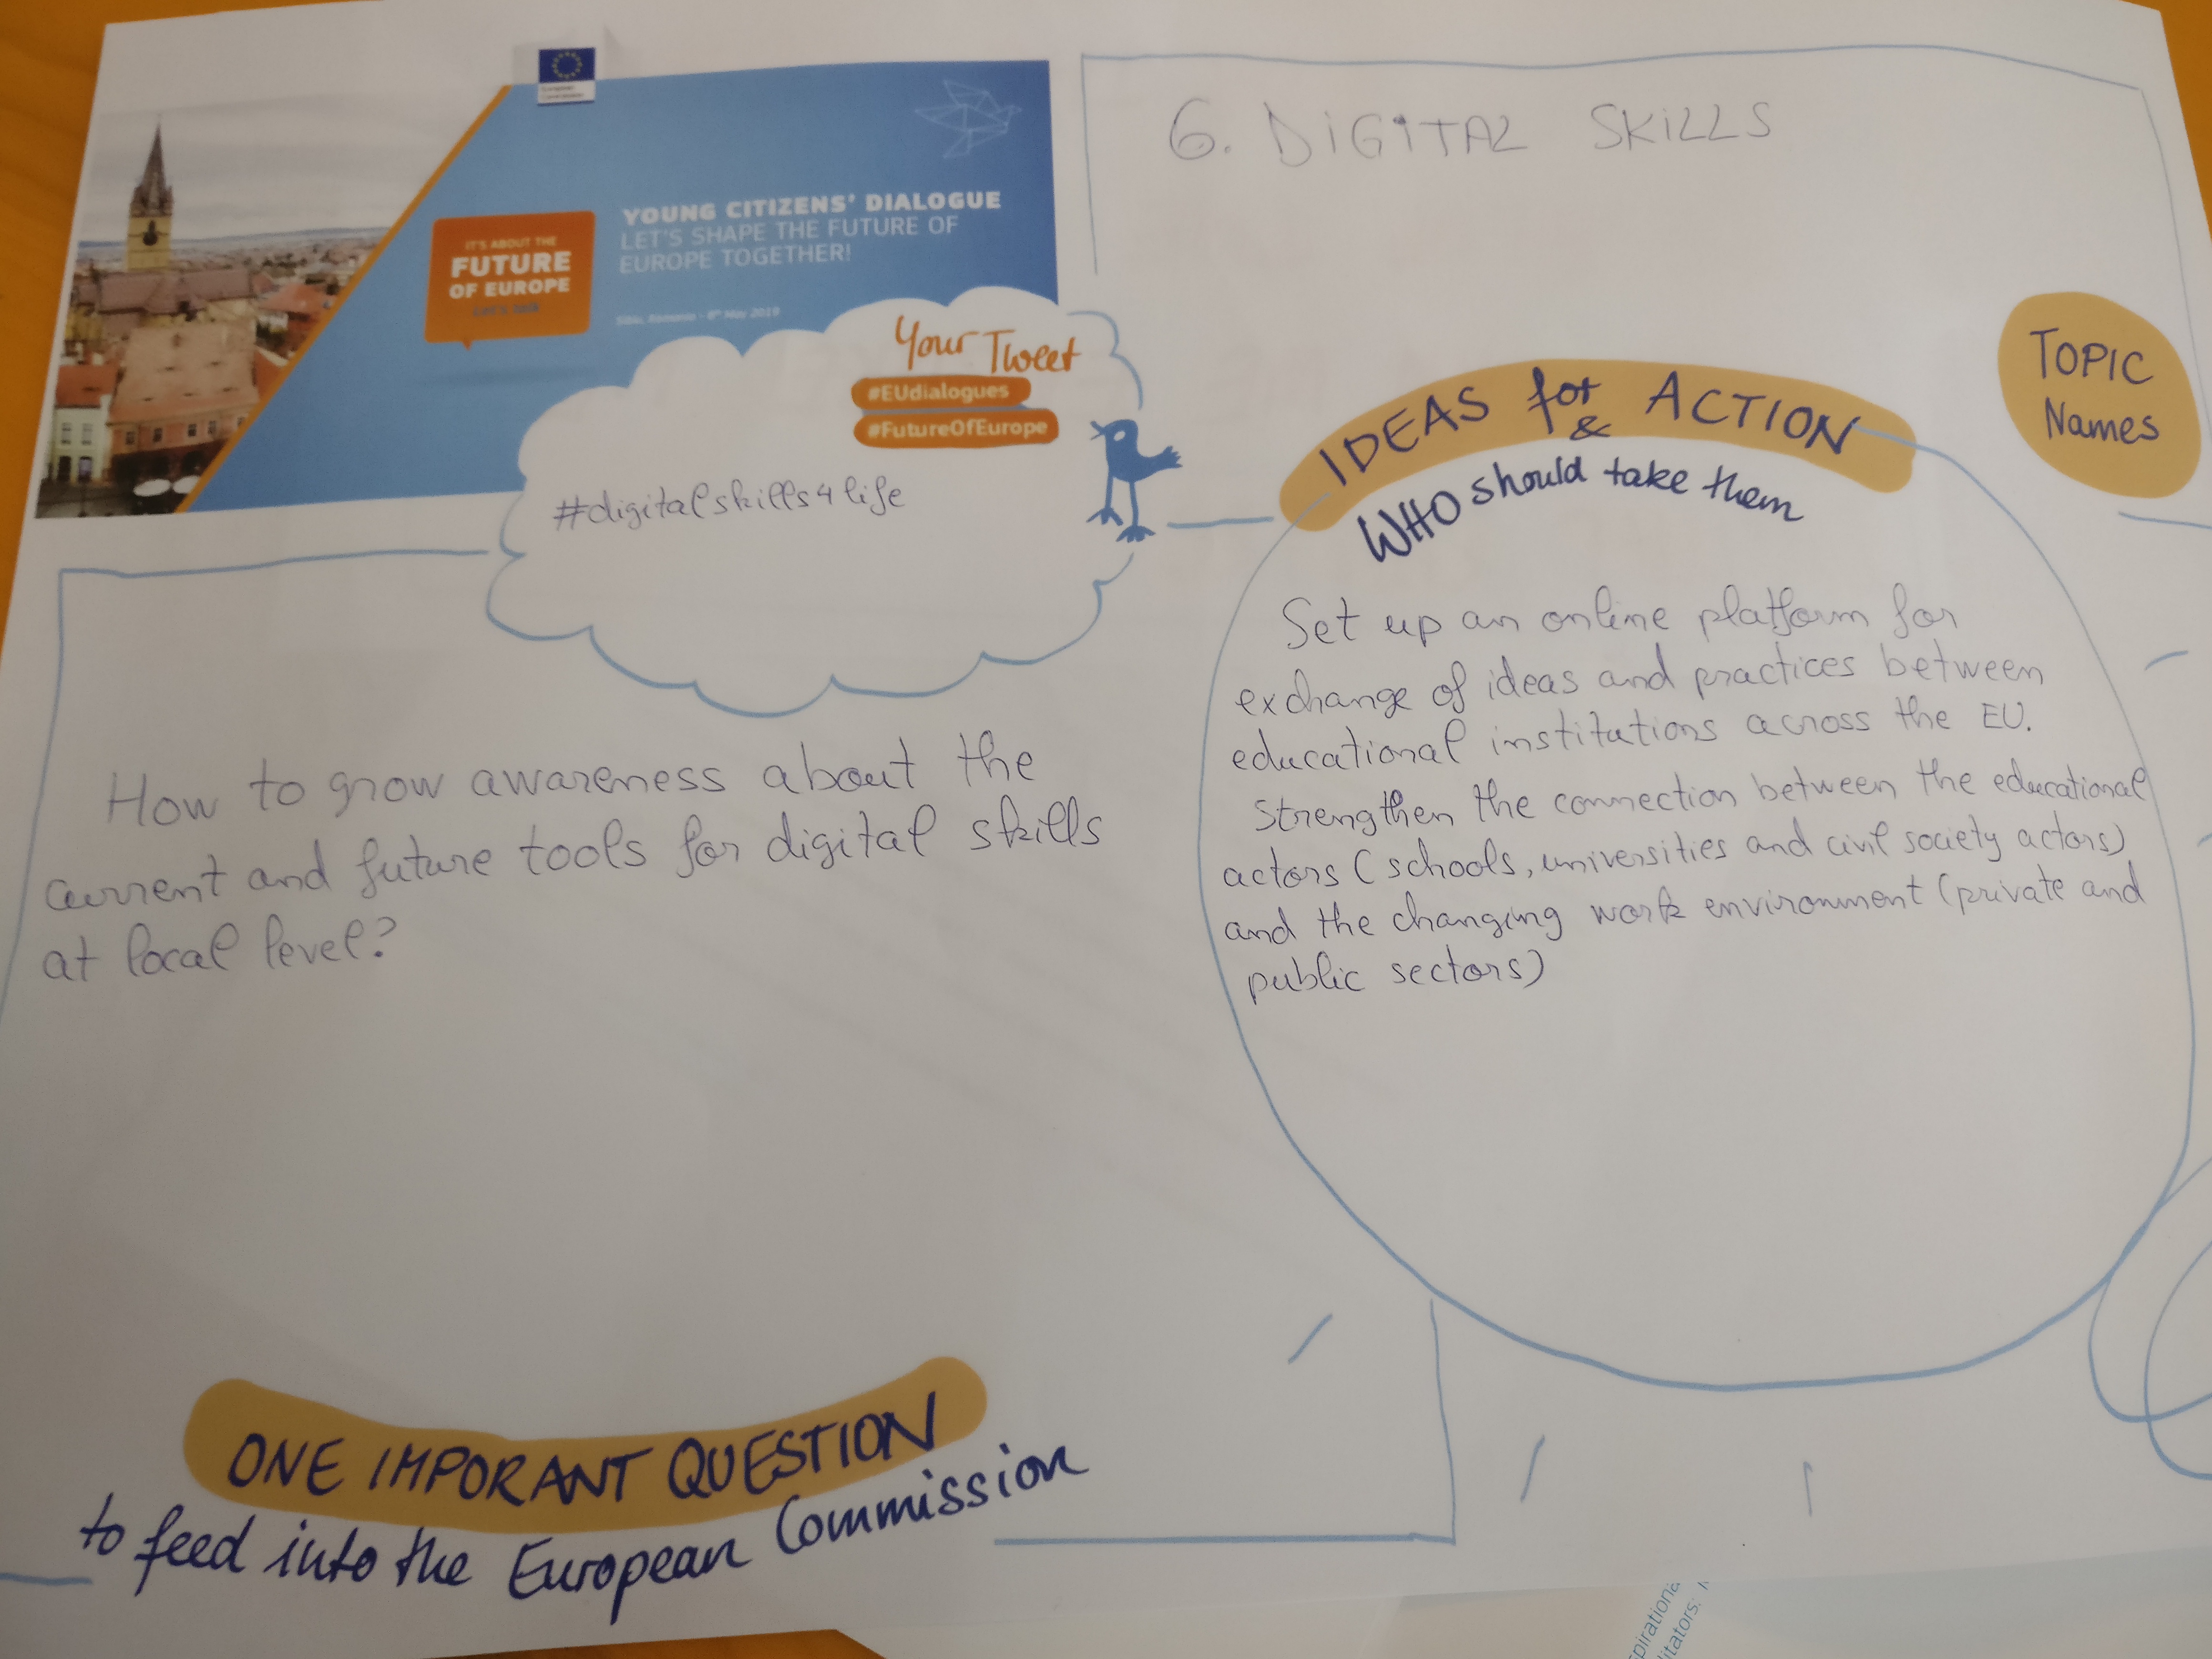 European
Commission
IT'S ABOUT THE
FUTURE
OF EUROPE
Let's talk
YOUNG CITIZENS' DIALOGUE
LET'S SHAPE THE FUTURE OF
EUROPE TOGETHER!
Sibiu, Romania - 8th May 2019
Your Tweet
#EUdialogues
#FutureOfEurope
#digitalskills4life
6. DiGiTAL SKiLLS
TOPIC
Names
IDEAS for ACTION
&
WHO should take them
Set up an online platform for
exchange of ideas and practices between
educational institutions across the EU.
Strengthen the connection between the educational
actors (schools, universities and civil society actors)
and the changing work environment (private and
public sectors)
How to grow awareness about the
current and future tools for digital skills
at local level?
ONE IMPORANT QUESTION
to feed into the European Commission